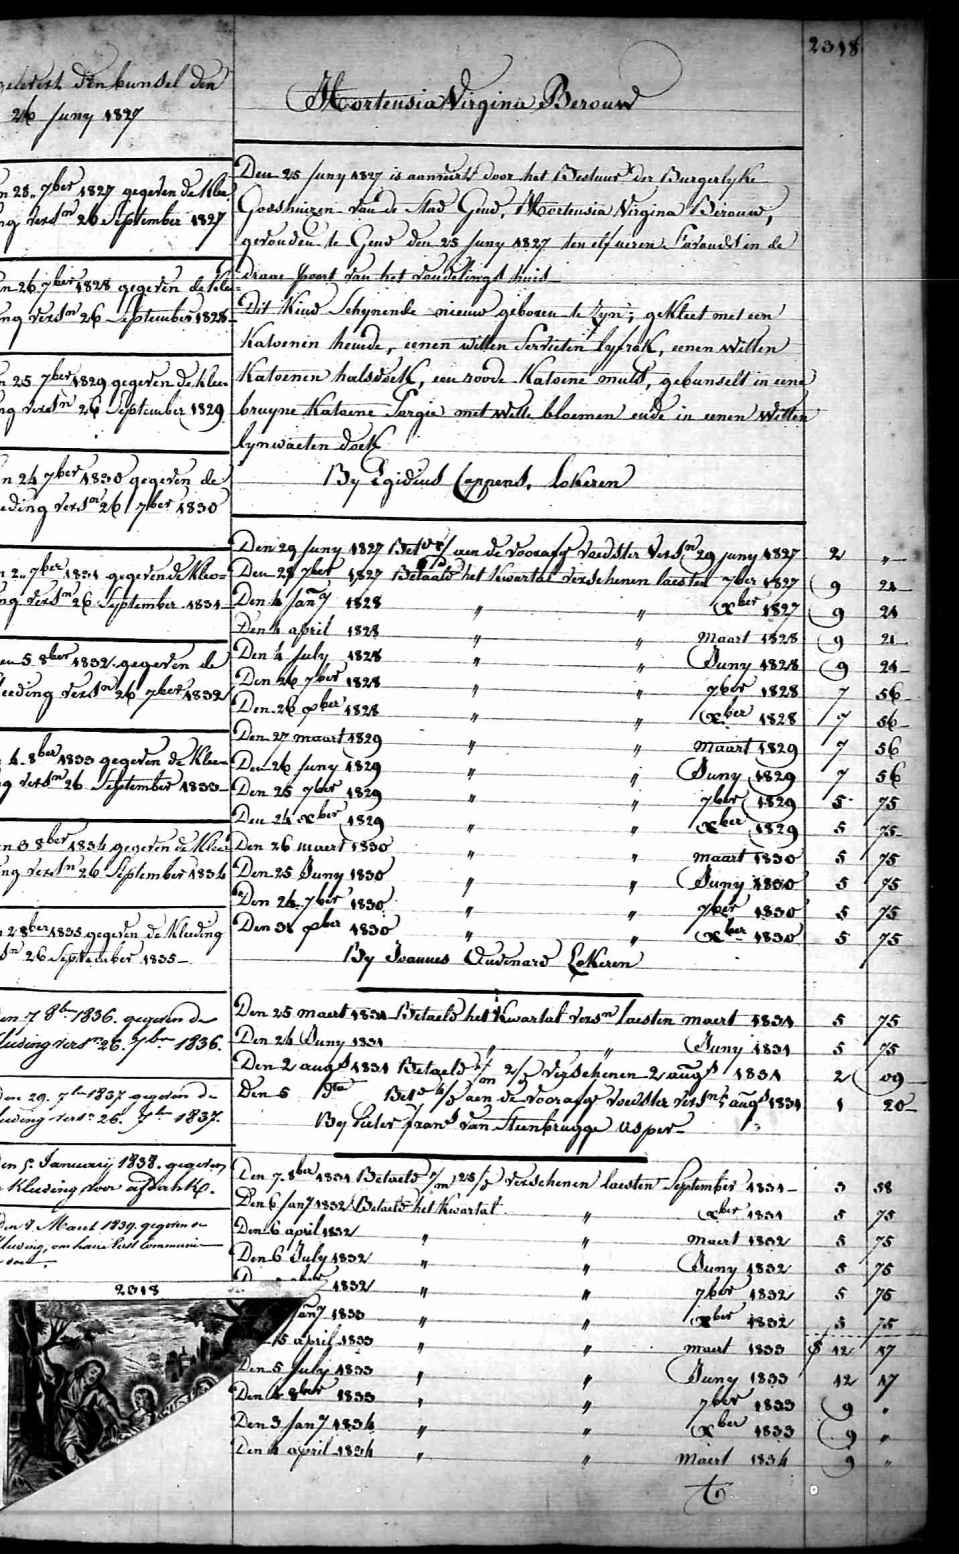 2318
gelevert den bunsel den
26 Juny 1827
n 28 7ber 1827 gegeven de klee
ng versn 26 September 1827
n 26 7ber 1828 gegeven de klee=
ng versn 26 September 1828
n 25 7ber 1829 gegeven de klee
ng versn 26 September 1829
n 24 7ber 1830 gegeven de
eding versn 26 7ber 1830
n 2 7ber 1831 gegeven de klee=
ng versn 26 September 1831
en 5 8ber 1832 gegeven de
leeding versn 26 7ber 1832
4 8ber 1833 gegeven de klee=
g versn 26 September 1833
n 3 8ber 1834 gegeven de klee
ng versn 26 September 1834
n 2 8ber 1835 gegeven de kleeding
sn 26 September 1835
en 7 8br 1836. gegeven de
leeding versn 26. 7br 1836.
den 29. 7br 1837 gegeven de
leeding versn 26. 7br 1837.
en 5 January 1838. gegeven
kleeding voor
den 7 Maert 1839. gegeven de
kleeding, om haere eerste communi-
2318
Hortensia Virginia Berouw
Den 25 Juny 1827 is aanveerd door het Bestuur der Burgerlyke
Godshuizen van de Stad Gend, Hortensia Virginia Berouw,
gevonden te Gend den 25 Juny 1827 ten elf ueren s'avonds in de
draae poort van het vondelingshuis
Dit kind schynende nieuw geboren te zyn; gekleet met een
katoenen hemde, eenen witten servieten lyfrok, eenen witten
katoenen halsdoek, een roode katoene muts, gebunselt in eene
bruyne katoene sargie met witte bloemen ende in eenen witten
lynwaeten doek
By Egidius Coppens, Lokeren
Den 29 Juny 1827 Betds aen de voorafg voedster versn 29 Juny 1827 2 "
Den 28 7ber 1827 Betaeld het kwartal verschenen laesten 7ber 1827 9 21
Den 4 Jany 1828 " " Xber 1827 9 21
Den 4 april 1828 " " Maart 1828 9 21
Den 4 July 1828 " " Juny 1828 9 21
Den 26 7ber 1828 " " 7ber 1828 7 56
Den 26 Xber 1828 " " Xber 1828 7 56
Den 27 maart 1829 " " Maart 1829 7 56
Den 26 Juny 1829 " " Juny 1829 7 56
Den 25 7ber 1829 " " 7ber 1829 5 75
Den 24 Xber 1829 " " Xber 1829 5 75
Den 26 maert 1830 " " maart 1830 5 75
Den 25 Juny 1830 " " Juny 1830 5 75
Den 24 7ber 1830 " " 7ber 1830 5 75
Den 31 Xber 1830 " " Xber 1830 5 75
By Joannes Oudenard Lokeren
Den 25 maert 1831 Betaeld het kwartal versn laesten maert 1831 5 75
Den 24 Juny 1831 " " Juny 1831 5 75
Den 2 augs 1831 Betaeld verschenen 2 augs 1831 2 09
Den 5 dto Betd aen de voorafg voedster versn 5 augs 1831 1 20
By Pieter Frans van Steenbrugge Asper
Den 7 8ber 1831 Betaeld verschenen laesten September 1831 3 58
Den 6 Jany 1832 Betaeld het kwartal " Xber 1831 5 75
Den 6 april 1832 " " maert 1832 5 75
Den 6 July 1832 " " Juny 1832 5 75
1832 " " 7ber 1832 5 75
Jany 1833 " " Xber 1832 5 75
15 april 1833 " " maert 1833 12 17
Den 5 July 1833 " " Juny 1833 12 17
Den 4 8ber 1833 " " 7ber 1833 9 "
Den 3 Jany 1834 " " Xber 1833 9 "
Den 4 april 1834 " " Maert 1834 9 "